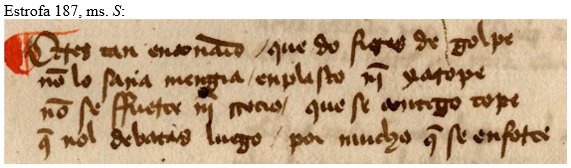 Estrofa 187, ms. S:
Eres tan enconado / que do fieres de golpe
nõ lo sana mengia / enplasto nj̃ xarope
nõ se ffuerte nj̃ rrecio / que se contigo tope
q̃ nol debatas luego / por mucho q̃ se enforce